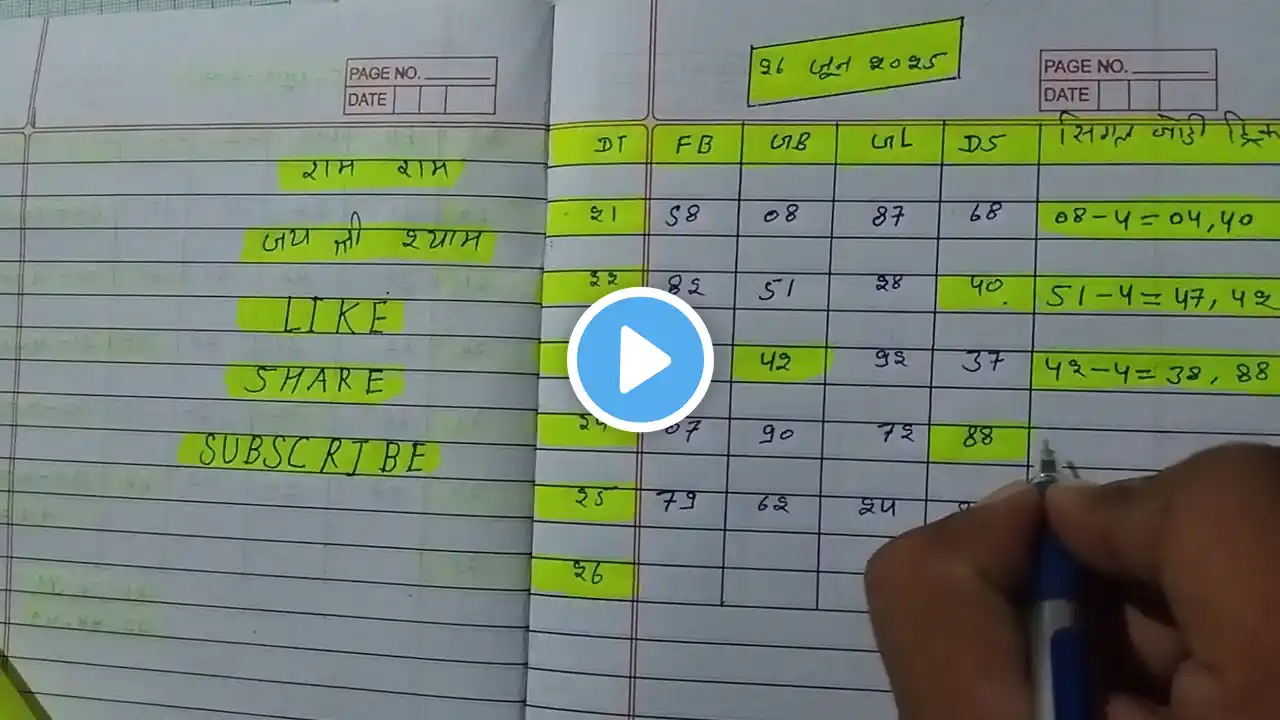 PAGE NO.
DATE
राम राम
जय श्री श्याम
LIKE
SHARE
SUBSCRIBE
२६ जून २०२५
PAGE NO.
DATE
DT FB जB जL DS सिंगल जोड़ी
२1 58 08 87 68 08-4=04,40
२२ 8२ 51 २8 40 51-4=47, 4२
4२ 9२ 37 4२-4=38, 88
२4 07 90 7२ 88
२5 79 6२ २4
२6